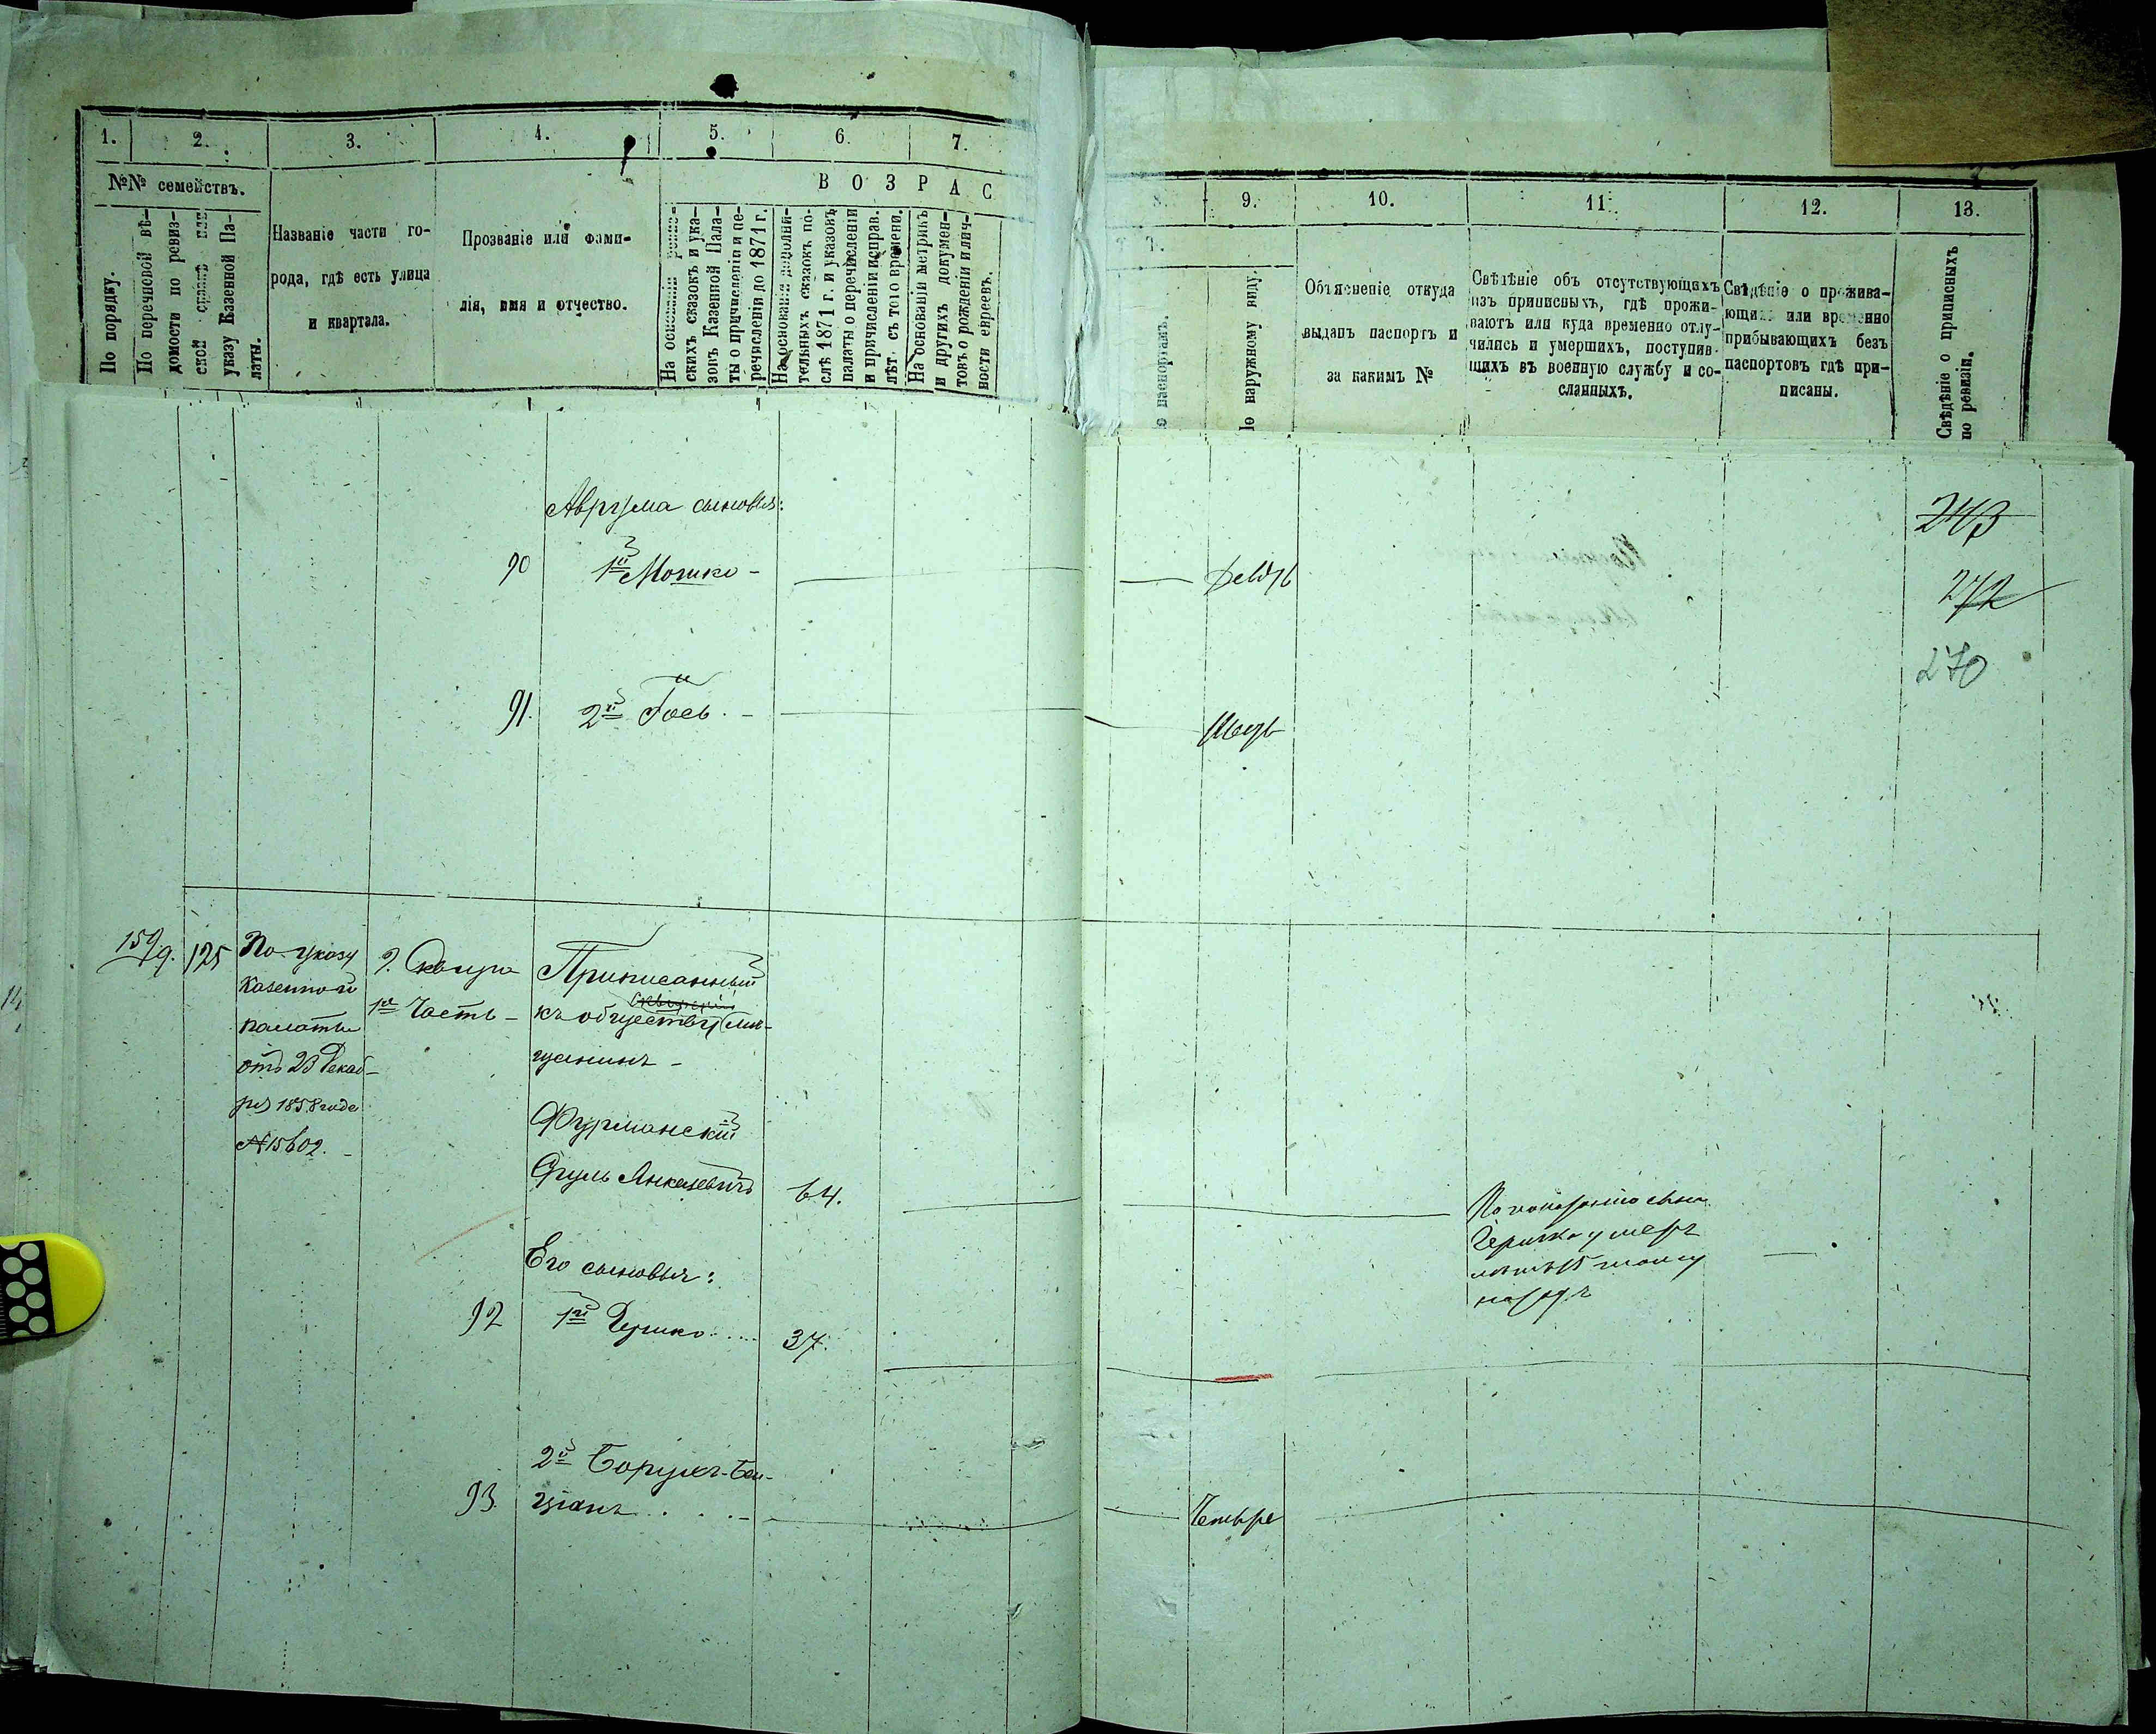 1.
2.
3.
4.
5.
6.
7.
№№ семействъ.
По порядку.
По перечневой вѣ-
домости по ревиз-
ской сказкѣ или
указу Казенной Па-
латы.
Названіе части го-
рода, гдѣ есть улица
и квартала.
Прозваніе или фами-
лія, имя и отчество.
ВОЗРАС
На основаніи ревиз-
скихъ сказокъ и ука-
зовъ Казенной Пала-
ты о причисленіи и пе-
речисленіи до 1871 г.
На основаніи дополни-
тельныхъ сказокъ по-
слѣ 1871 г. и указовъ
палаты о перечисленіи
и причисленіи исправ.
лѣт. съ того времени.
На основаніи метрикъ
и другихъ докумен-
товъ о рожденіи и лич-
ности евреевъ.
8.
9.
10.
11.
12.
13.
Т.
о паспортамъ.
По наружному виду.
Объясненіе откуда
выданъ паспортъ и
за какимъ №
Свѣдѣніе объ отсутствующихъ
изъ приписныхъ, гдѣ прожи-
ваютъ или куда временно отлу-
чились и умершихъ, поступив-
шихъ въ военную службу и со-
сланныхъ.
Свѣдѣніе о прожива-
ющихъ или временно
прибывающихъ безъ
паспортовъ гдѣ при-
писаны.
Свѣдѣніе о приписныхъ
по ревизіи.
Аврума сыновья:
243
90 1й Мошко -
272
270
91. 2й Гось. -
159.
9. 125
По указу
Казенной
палаты
отъ 23 Декаб-
ря 1858 года
№ 15602. -
г. Сквира
1я Часть -
Приписанный
къ обществу мѣ-
щанинъ -
Фурманскій
Сруль Янкелевичъ 64.
По показанію сына
Гершка умеръ
лѣтъ 15 тому
назадъ
Его сыновья:
92 1й Гершко .... 37.
2й Борухъ-Бен-
93. ціанъ . . . -
Четыре